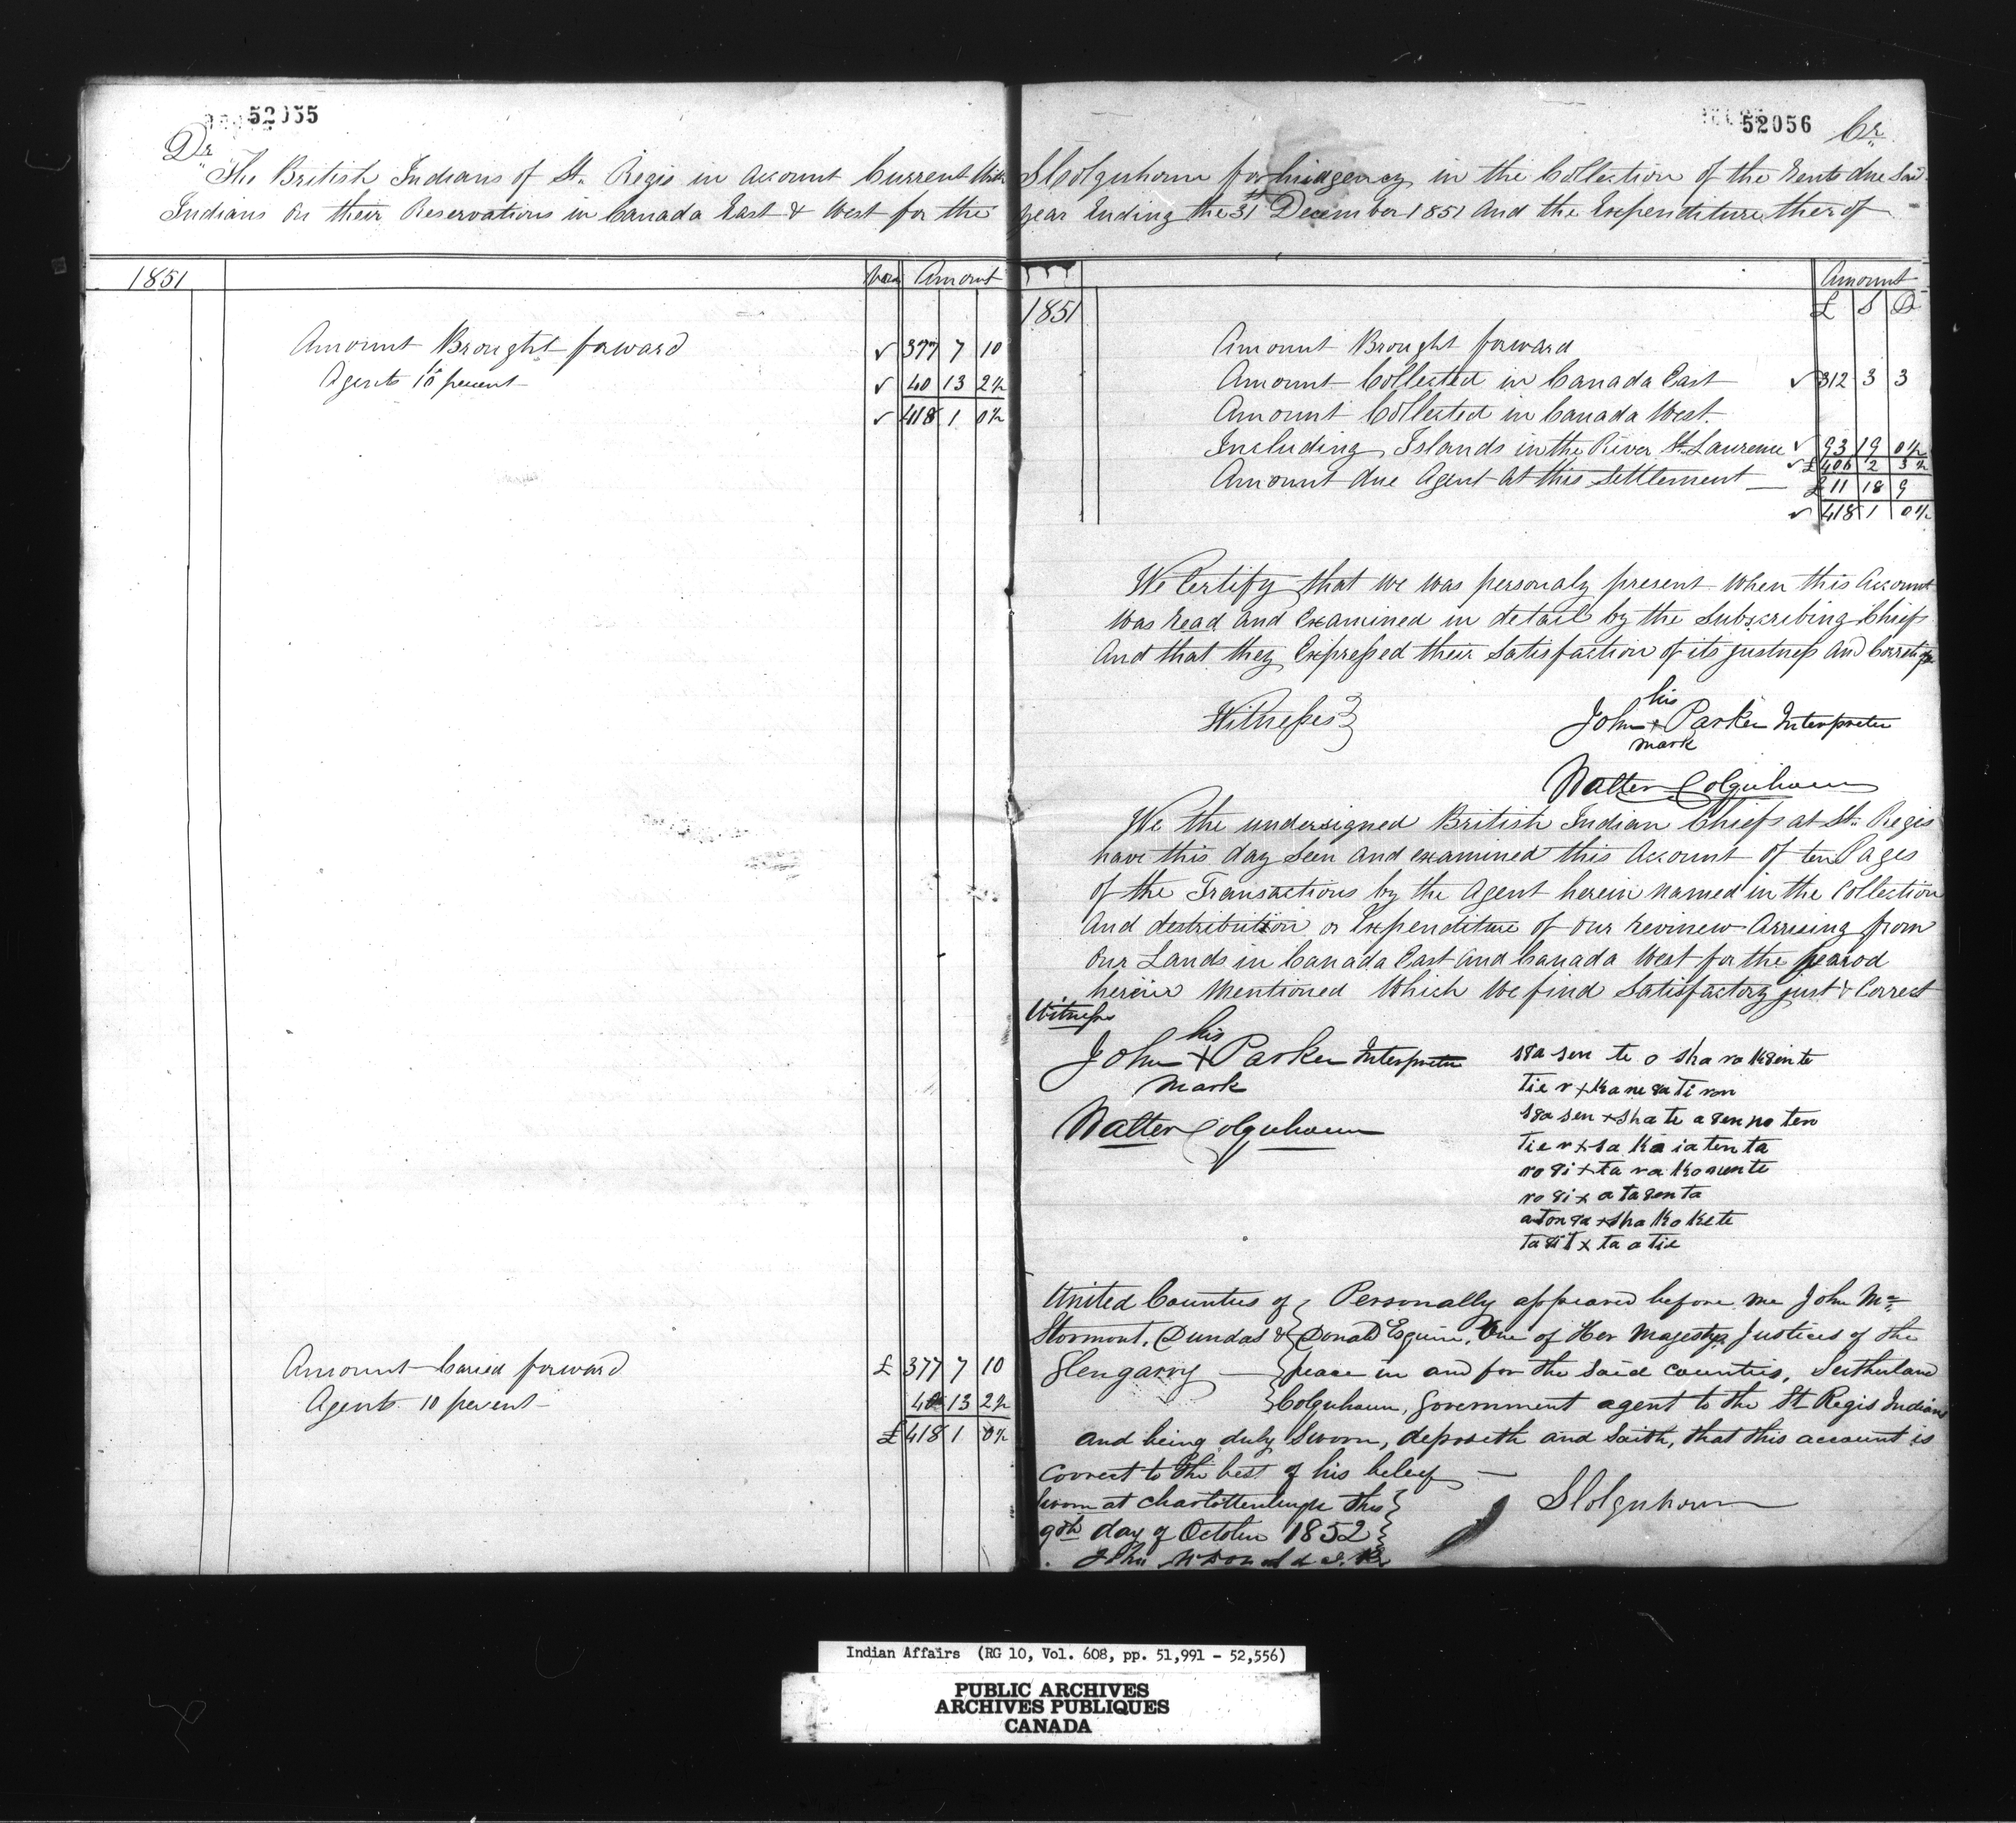 52055
Dr
The British Indians of St. Regis in Account Current With
Indians on their Reservations in Canada East & West for the
1851
Amount
Amount Brought forward ✓ 377 7 10
Agents 10 percent ✓ 40 13 2½
✓ 418 1 0½
Amount Caried forward £ 377 7 10
Agents 10 percent 40 13 2½
£ 418 1 0½
52056
Cr
SColquhoun for his agency in the Collection of the Rents due Said
year Ending the 31st December 1851 And the Expenditure ther of
1851
Amount
£ S D
Amount Brought forward
Amount Collected in Canada East ✓ 312 3 3
Amount Collected in Canada West.
Including Islands in the River St. Laurence ✓ 93 19 0½
✓ £ 406 2 3½
Amount due Agent at this Settlement £ 11 18 9
✓ 418 1 0½
We Certify that we was personaly present when this Account
was read and Examined in detail by the Subscribing Chiefs
And that they Expressed their Satisfaction of its justness And
Witnesses }
his
John + Parker Interpreter
mark
Walter Colquhoun
We the undersigned British Indian Chiefs at St. Regis
have this day Seen and examined this Account of ten Pages
of the Transactions by the Agent herein named in the Collection
And destribution or Expenditure of our revinew Arrising from
Our Lands in Canada East and Canada West for the pearod
herein Mentioned Which We find Satisfactory just & Correct
Witness
his
John + Parker Interpreter
mark
Walter Colquhoun
s8a sen te o sha ra k8en te
tie r + ka ne 8a ti ron
s8a sen + sha te a 8en no ten
tie r + sa ka ia ten ta
ro 8i + ta ra ko nen te
ro 8i x a ta 8en ta
a ton 8a + sha ko ke te
ta 8it x ta a tie
United Counties of { Personally appeared before me John Mc
Stormont, Dundas & { Donald Esquire, One of Her Majestys Justices of the
Glengarry { peace in and for the said counties, Sutherland
{ Colquhoun, Government agent to the St Regis Indians
and being duly Sworn, deposeth and saith, that this account is
correct to the best of his beleef
Sworn at Charlottenburgh this }
9th day of October 1852 }
SColquhoun
John McDonald J.P.
Indian Affairs (RG 10, Vol. 608, pp. 51,991 - 52,556)
PUBLIC ARCHIVES
ARCHIVES PUBLIQUES
CANADA